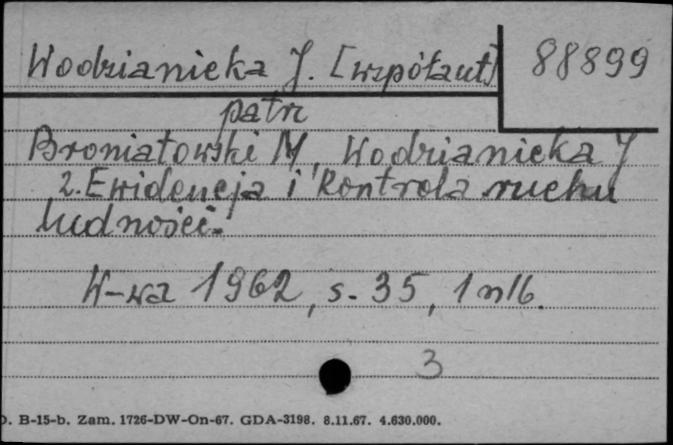 Wodzianicka J. [współaut]
88899
patrz
Broniatowski M, Wodzianicka J
2. Ewidencja i kontrola ruchu
ludności.
W-wa 1962, s. 35, 1 nlb.
3
B-15-b. Zam. 1726-DW-On-67. GDA-3198. 8.11.67. 4.630.000.